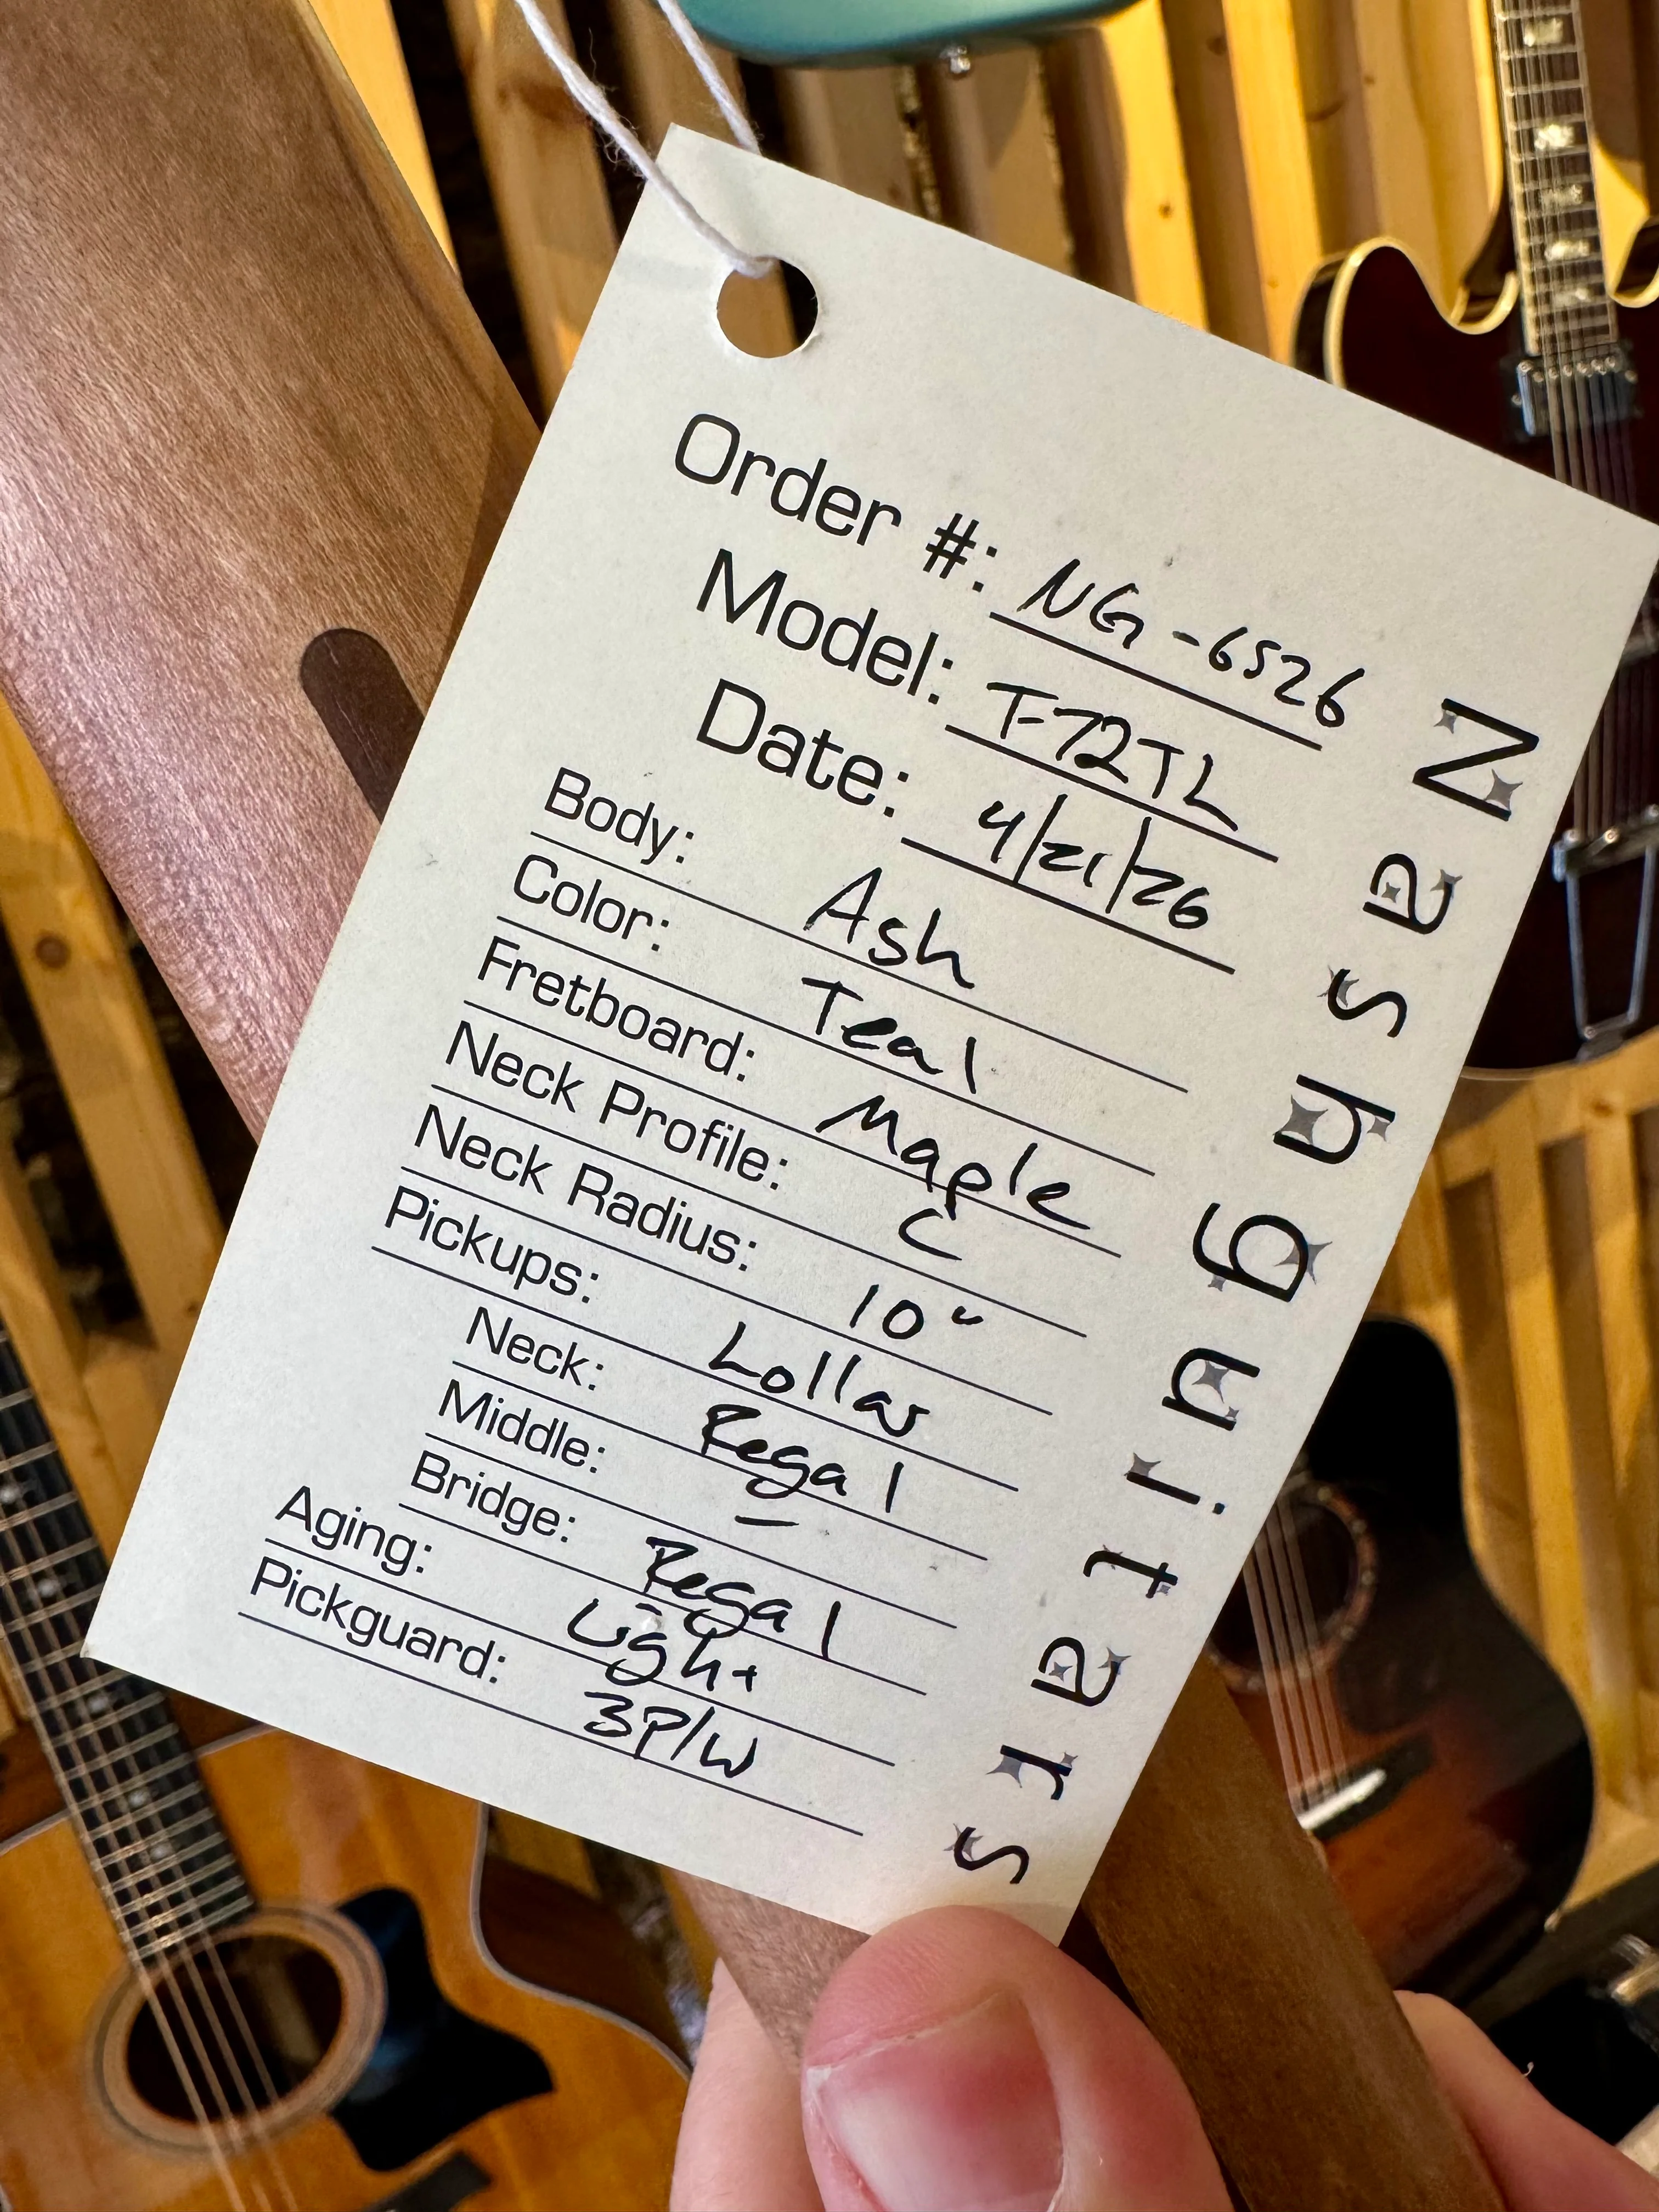 Order #: NG-6526
Model: T-72TL
Date: 4/21/26
Body: Ash
Color: Teal
Fretboard: Maple
Neck Profile: C
Neck Radius: 10"
Pickups: Lollar
Neck: Regal
Middle: —
Bridge: Regal
Aging: Light
Pickguard: 3P/W
Nash Guitars